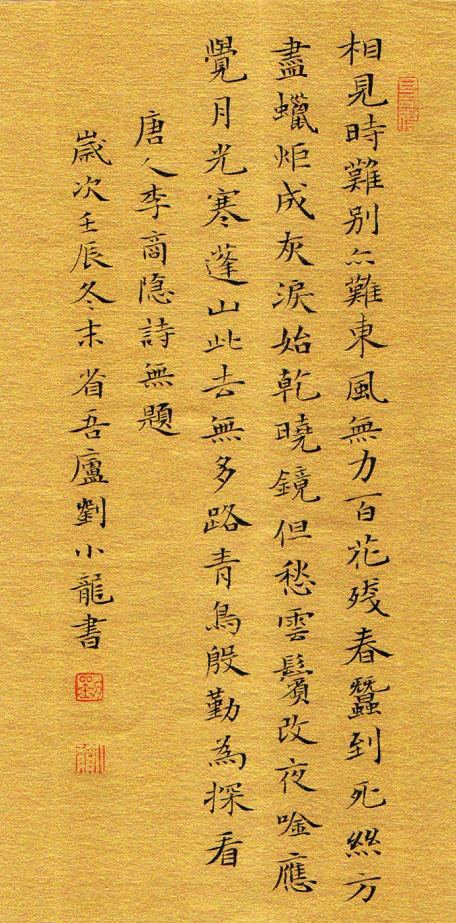 相見時難別亦難東風無力百花殘春蠶到死絲方
盡蠟炬成灰淚始乾曉鏡但愁雲鬢改夜唫應
覺月光寒蓬山此去無多路青鳥殷勤為探看
唐人李商隱詩無題
歲次壬辰冬末省吾廬劉小龍書